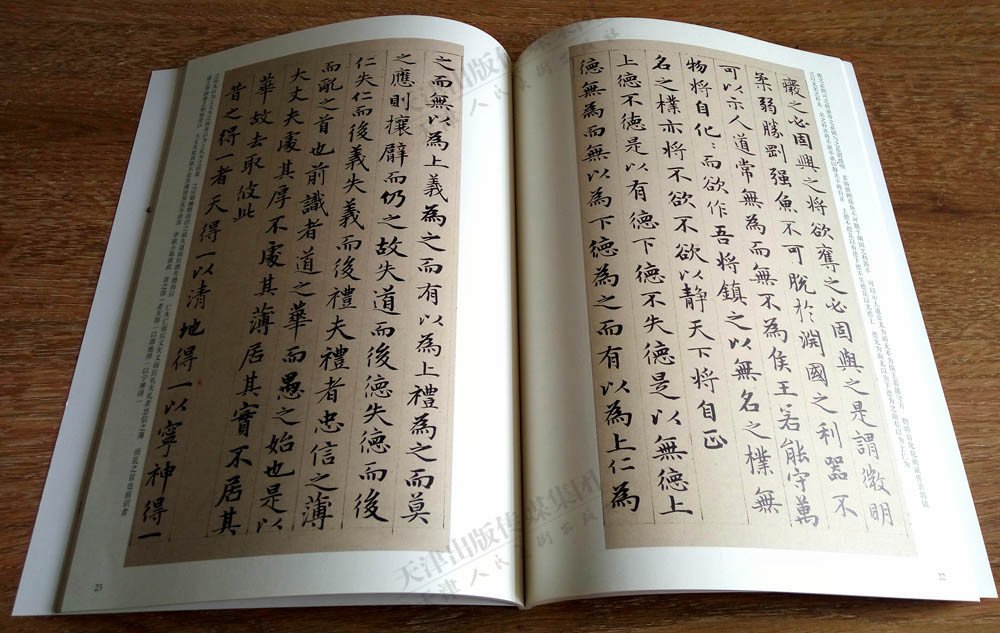 廢之必固與之將欲奪之必固與之是謂微明
柔弱勝剛强魚不可脫於淵國之利器不
可以示人道常無為而無不為侯王若能守萬
物將自化〻而欲作吾將鎮之以無名之樸無
名之樸亦將不欲不欲以靜天下將自正
上德不德是以有德下德不失德是以無德上
德無為而無以為下德為之而有以為上仁為
22
之而無以為上義為之而有以為上禮為之而莫
之應則攘臂而仍之故失道而後德失德而後
仁失仁而後義失義而後禮夫禮者忠信之薄
而亂之首也前識者道之華而愚之始也是以
大丈夫處其厚不處其薄居其實不居其
華故去取彼此
昔之得一者天得一以清地得一以寧神得一
23
天津出版传媒集团
天津人民美術出版社